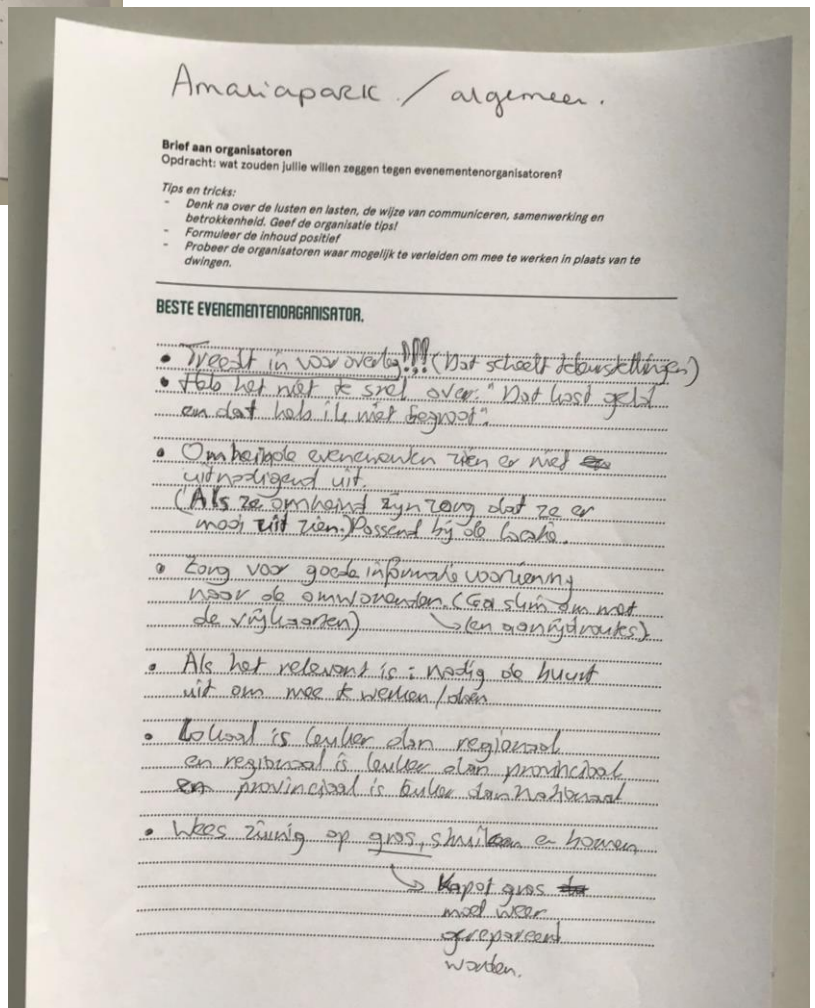 Amaliapark / algemeen.
Brief aan organisatoren
Opdracht: wat zouden jullie willen zeggen tegen evenementenorganisatoren?
Tips en tricks:
- Denk na over de lusten en lasten, de wijze van communiceren, samenwerking en
betrokkenheid. Geef de organisatie tips!
- Formuleer de inhoud positief
- Probeer de organisatoren waar mogelijk te verleiden om mee te werken in plaats van te
dwingen.
BESTE EVENEMENTENORGANISATOR,
• Treedt in vooroverleg!!! (Dat scheelt teleurstellingen)
• Heb het niet te snel over: "Dat kost geld
en dat heb ik niet begroot".
• Omheinde evenementen zien er niet
uitnodigend uit.
(Als ze omheind zijn zorg dat ze er
mooi uit zien.) Passend bij de locatie.
• Zorg voor goede informatie voorziening
naar de omwonenden. (Ga slim om met
de vrijkaarten) (en aanrijdroutes)
• Als het relevant is: nodig de buurt
uit om mee te werken/doen
• Lokaal is leuker dan regionaal
en regionaal is leuker dan provinciaal
en provinciaal is leuker dan Nationaal
• Wees zuinig op gras, struiken en bomen
Kapot gras
moet weer
gerepareerd
worden.